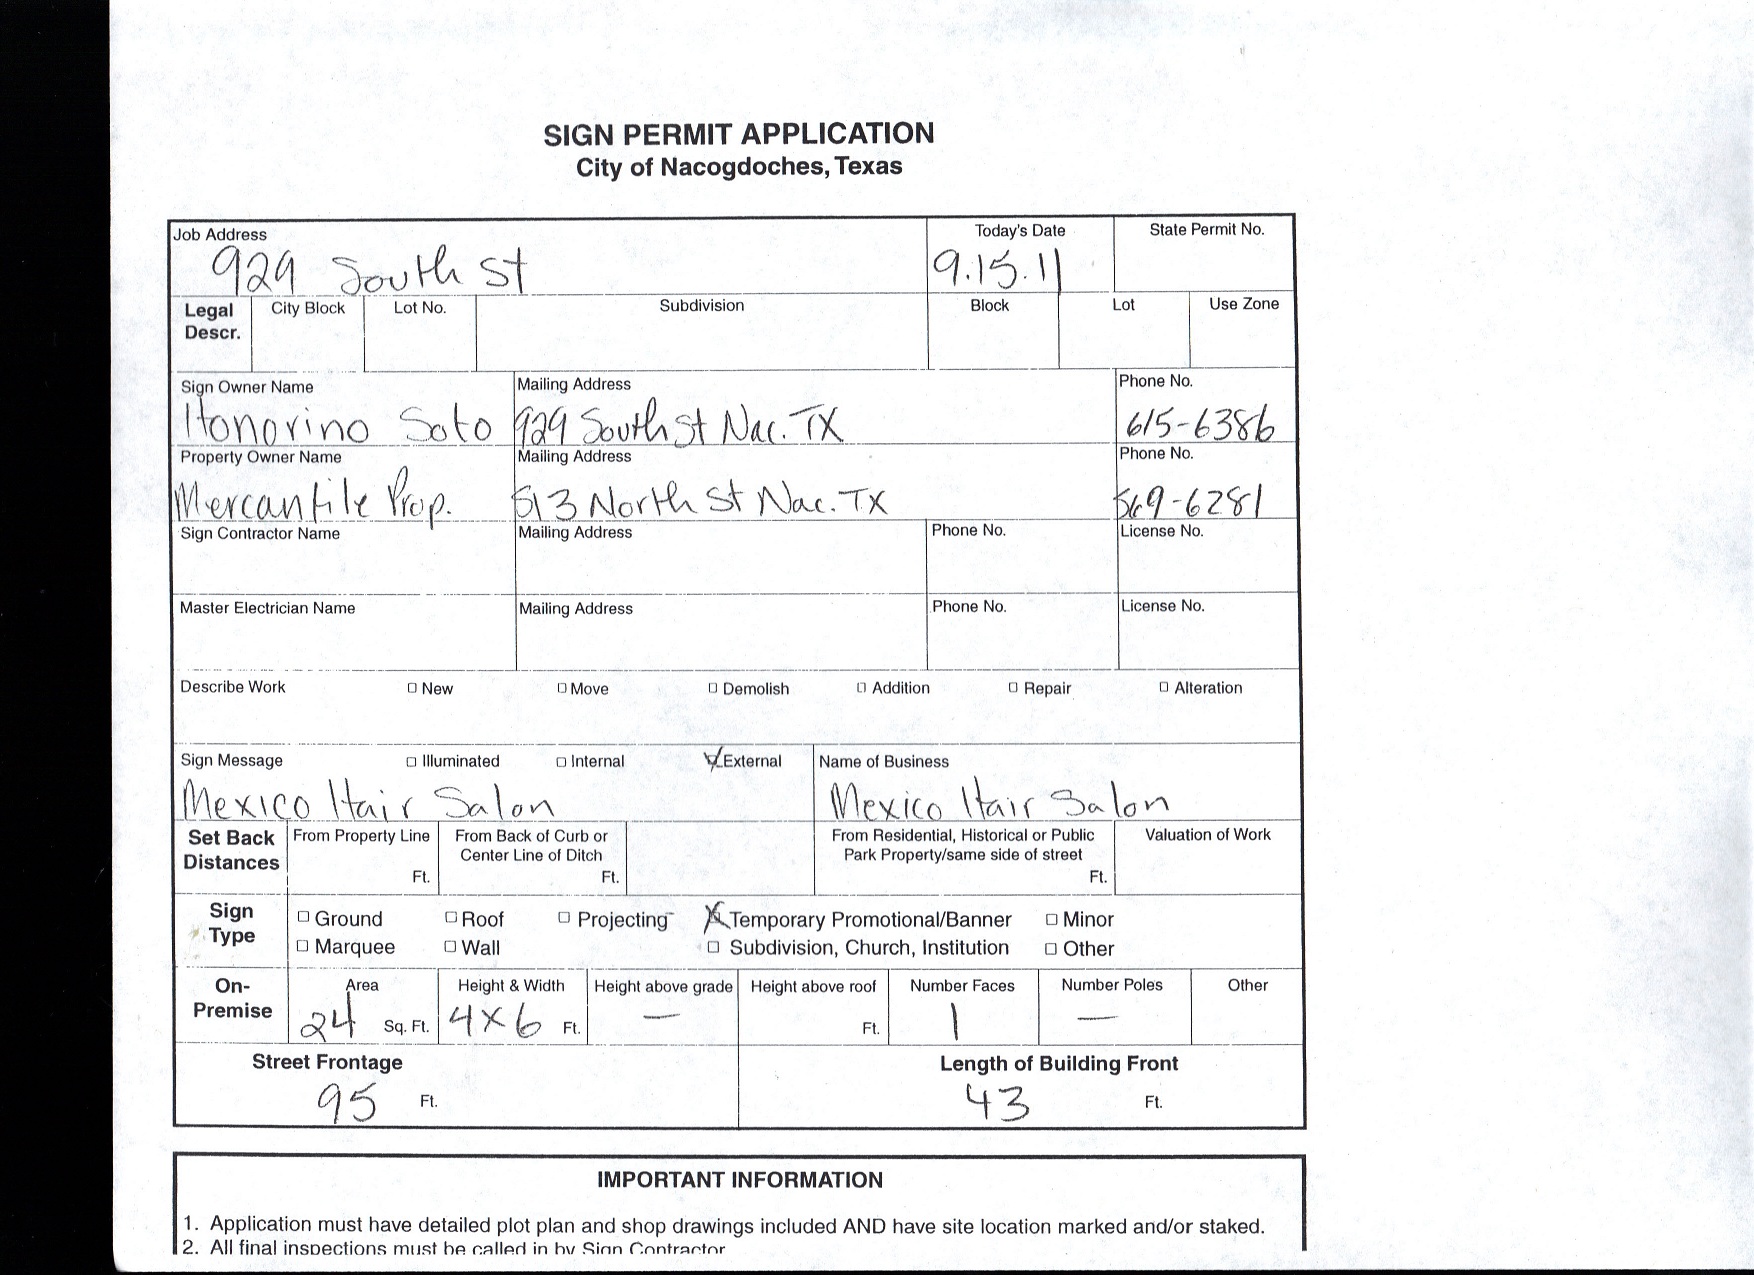 SIGN PERMIT APPLICATION
City of Nacogdoches, Texas
Job Address
929 South St
Today's Date
9.15.11
State Permit No.
Legal Descr.
City Block
Lot No.
Subdivision
Block
Lot
Use Zone
Sign Owner Name
Honorino Soto
Mailing Address
929 South St Nac. TX
Phone No.
615-6386
Property Owner Name
Mercantile Prop.
Mailing Address
513 North St Nac. TX
Phone No.
569-6281
Sign Contractor Name
Mailing Address
Phone No.
License No.
Master Electrician Name
Mailing Address
Phone No.
License No.
Describe Work
New
Move
Demolish
Addition
Repair
Alteration
Sign Message
Illuminated
Internal
External
Mexico Hair Salon
Name of Business
Mexico Hair Salon
Set Back
Distances
From Property Line
Ft.
From Back of Curb or
Center Line of Ditch
Ft.
From Residential, Historical or Public
Park Property/same side of street
Ft.
Valuation of Work
Sign
Type
Ground
Roof
Projecting
Temporary Promotional/Banner
Minor
Marquee
Wall
Subdivision, Church, Institution
Other
On-
Premise
Area
24 Sq. Ft.
Height & Width
4x6 Ft.
Height above grade
—
Height above roof
Ft.
Number Faces
1
Number Poles
—
Other
Street Frontage
95 Ft.
Length of Building Front
43 Ft.
IMPORTANT INFORMATION
1. Application must have detailed plot plan and shop drawings included AND have site location marked and/or staked.
2. All final inspections must be called in by Sign Contractor